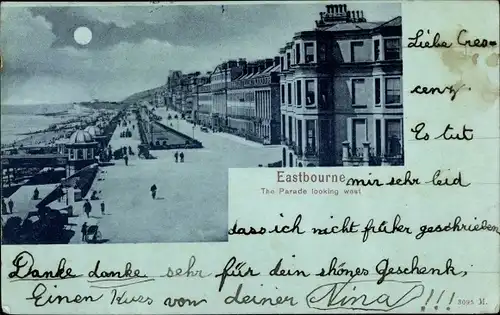 Liebe Cres-
cenz.
Es tut
Eastbourne
mir sehr leid
The Parade looking west
dass ich nicht früher geschrieben
Danke danke sehr für dein shönes Geschenk.
Einen Kuss von deiner Nina!!!
3095 M.